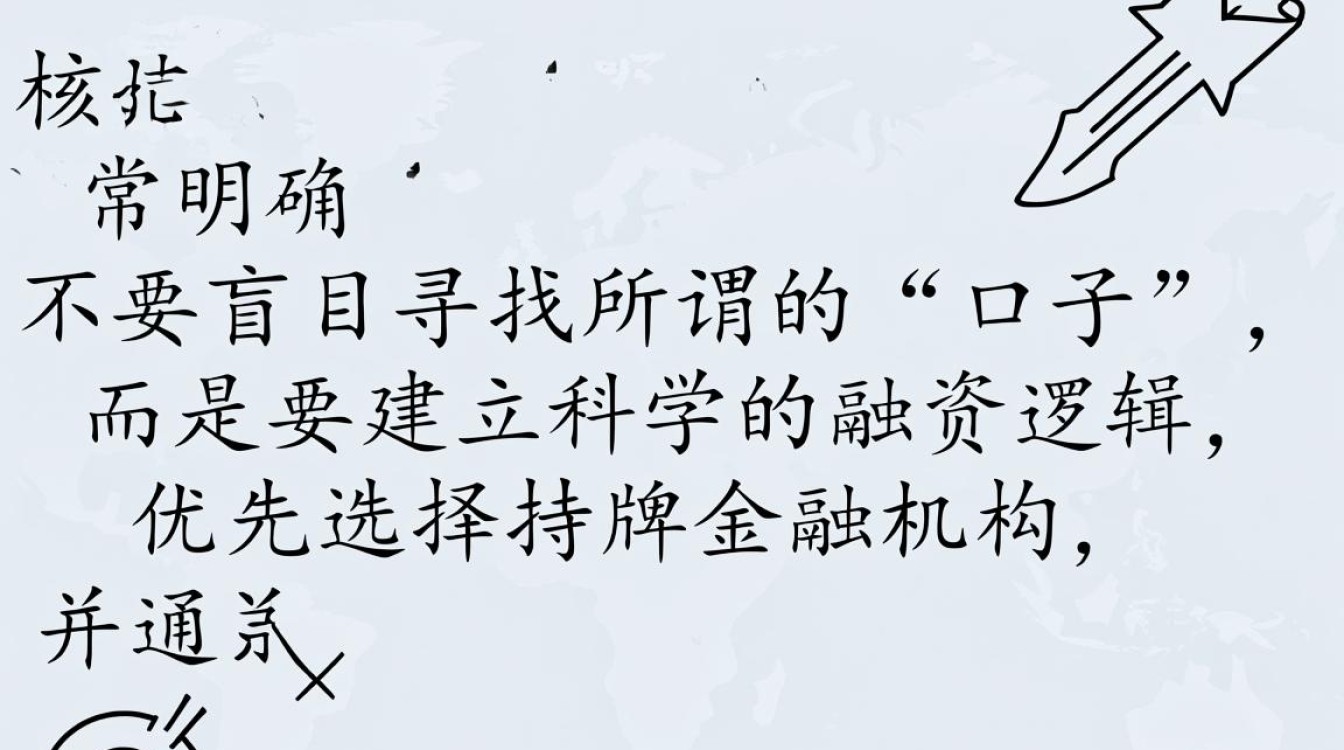 核
常明确
不要盲目寻找所谓的“口子”，
而是要建立科学的融资逻辑，
优先选择持牌金融机构，
并通